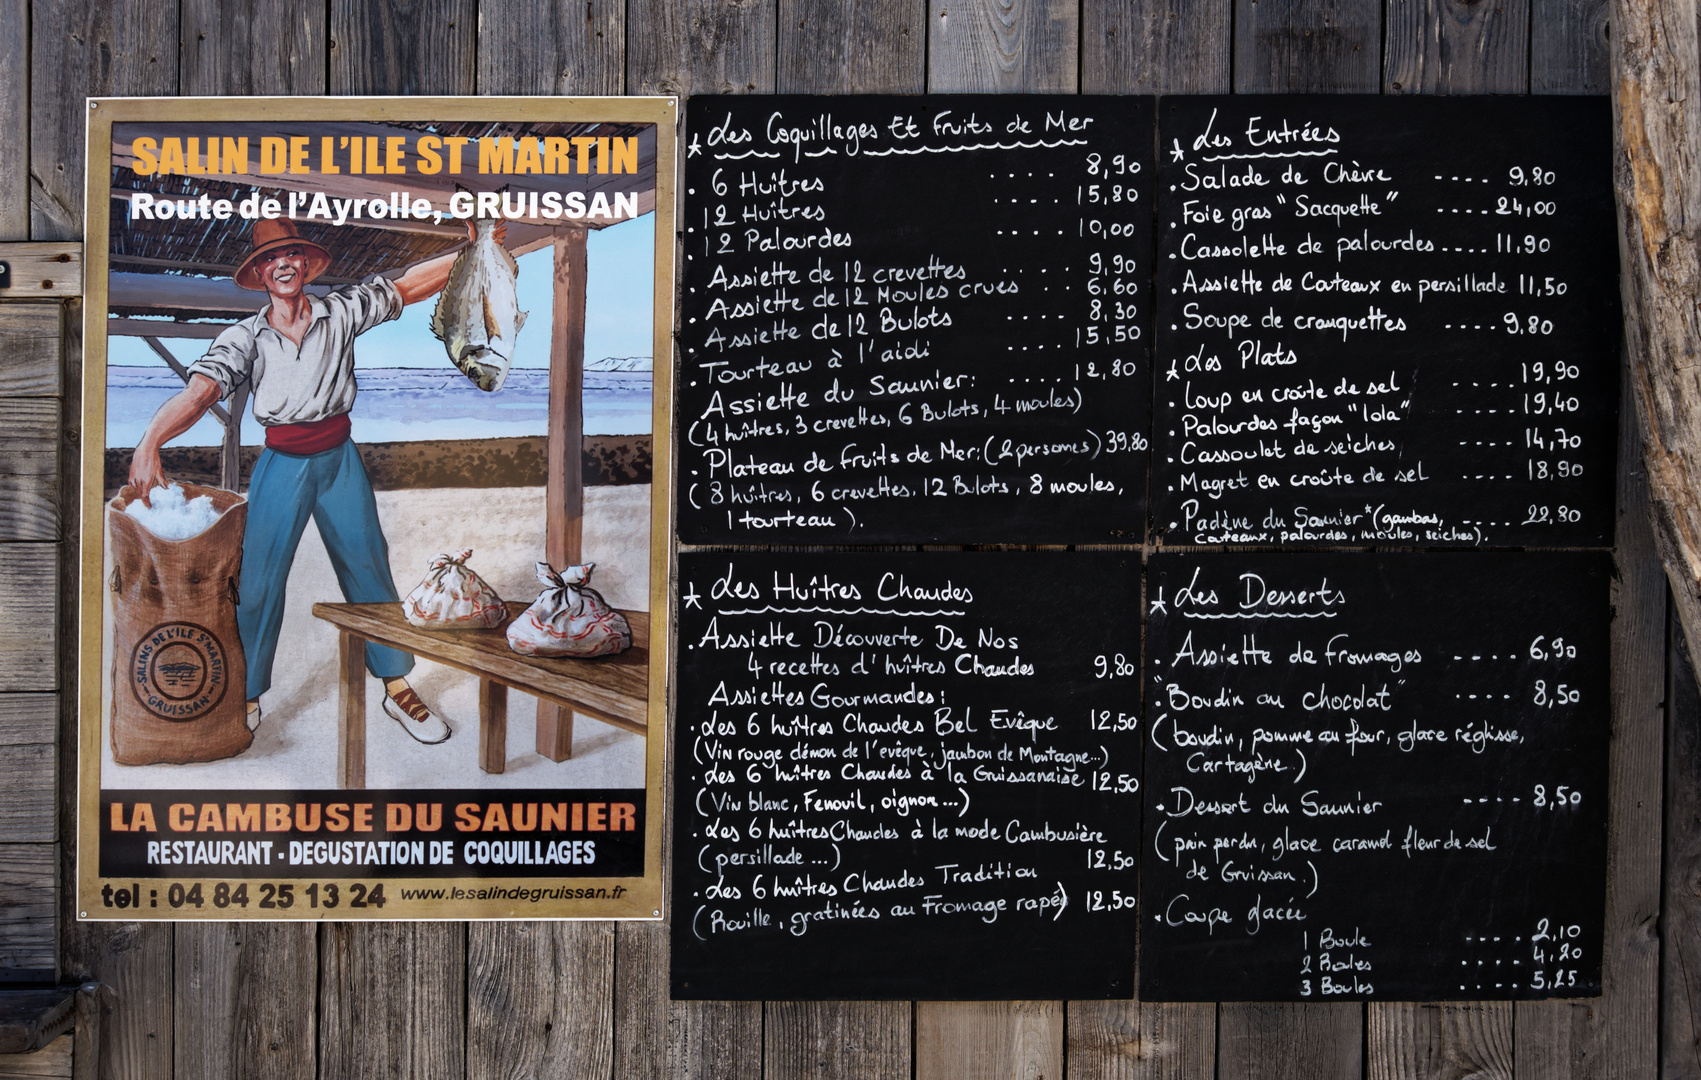 SALIN DE L'ILE ST MARTIN
Route de l'Ayrolle, GRUISSAN
SALINS DE L'ILE ST MARTIN
GRUISSAN
LA CAMBUSE DU SAUNIER
RESTAURANT - DEGUSTATION DE COQUILLAGES
tel : 04 84 25 13 24 www.lesalindegruissan.fr
Les Coquillages Et Fruits de Mer
. 6 Huîtres .... 8,90
. 12 Huîtres .... 15,80
. 12 Palourdes .... 10,00
. Assiette de 12 crevettes .... 9,90
. Assiette de 12 Moules crues .. 6,60
. Assiette de 12 Bulots .... 8,30
. Tourteau à l'aïoli .... 15,50
. Assiette du Saunier: .... 12,80
(4 huîtres, 3 crevettes, 6 Bulots, 4 moules)
. Plateau de Fruits de Mer: (2 personnes) 39,80
( 8 huîtres, 6 crevettes, 12 Bulots, 8 moules,
1 tourteau ).
Les Entrées
. Salade de Chèvre .... 9,80
. Foie gras "Sacquette" .... 24,00
. Cassolette de palourdes .... 11,90
. Assiette de Couteaux en persillade 11,50
. Soupe de cranquettes .... 9,80
Les Plats
. Loup en croûte de sel .... 19,90
. Palourdes façon "lola" .... 19,40
. Cassoulet de seiches .... 14,70
. Magret en croûte de sel .... 18,90
. Padène du Saunier* (gambas, .... 22,80
couteaux, palourdes, moules, seiches).
Les Huîtres Chaudes
. Assiette Découverte De Nos
4 recettes d'huîtres Chaudes 9,80
Assiettes Gourmandes :
. Les 6 huîtres Chaudes Bel Evêque 12,50
(Vin rouge démon de l'evêque, jambon de Montagne...)
. Les 6 huîtres Chaudes à la Gruissanaise 12,50
(Vin blanc, Fenouil, oignon...)
. Les 6 huîtres Chaudes à la mode Cambusière
(persillade ...) 12,50
. Les 6 huîtres Chaudes Tradition
(Rouille, gratinées au Fromage rapé) 12,50
Les Desserts
. Assiette de fromages .... 6,90
. "Boudin au chocolat" .... 8,50
(boudin, pomme au four, glace réglisse,
Cartagène.)
. Dessert du Saunier .... 8,50
(pain perdu, glace caramel fleur de sel
de Gruissan.)
. Coupe glacée
1 Boule .... 2,10
2 Boules .... 4,20
3 Boules .... 5,25